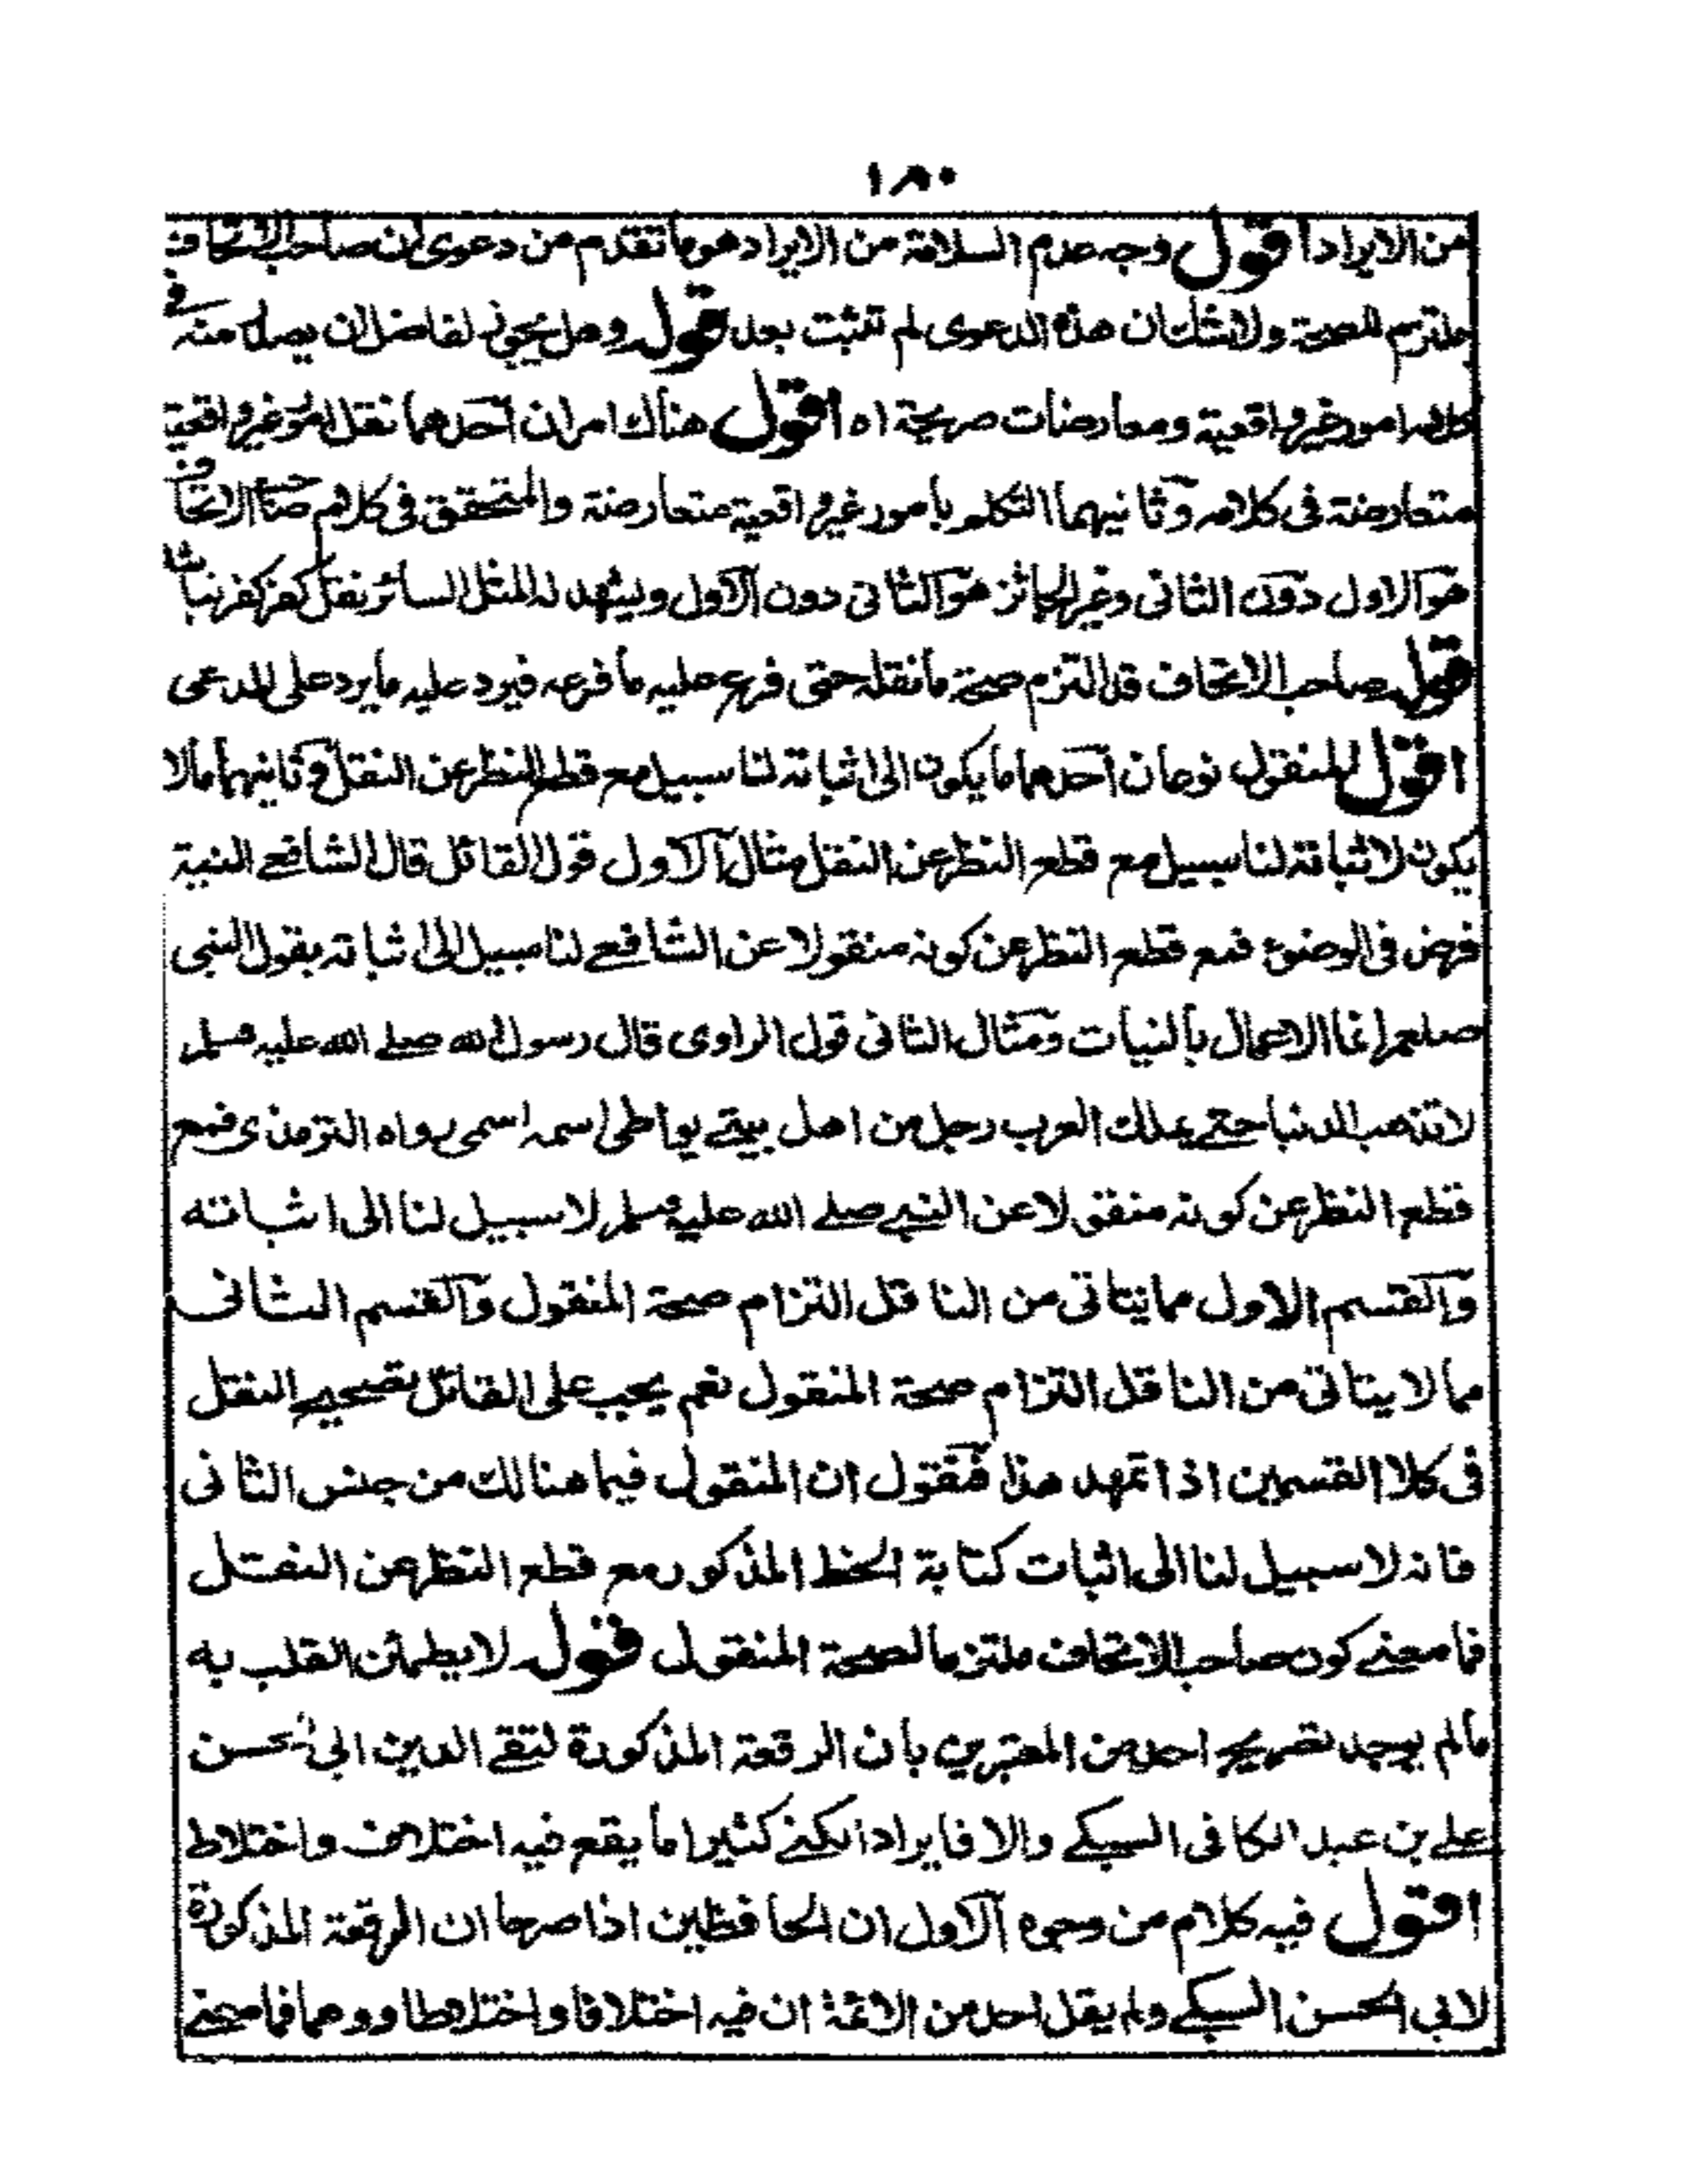 ١٨٠
من الايراد اقول وجه عدم السلامة من الايراد هو ما تقدم من دعوى ان صاحب الاتحاف
ملتزم للصحة ولا شك ان هذه الدعوى لم تثبت بعد قوله وهل يجوز لفاضل ان يصدر منه في
كلامه امور غير واقعية ومعارضات صريحة اه اقول هناك امران احدهما نقل امور غير واقعية
متعارضة فى كلامه وثانيهما التكلم بأمور غير واقعية متعارضة والمتحقق فى كلام صاحب الاتحاف
هو الاول دون الثانى وغير الجائز هو الثانى دون الاول ويشهد له المثل السائر نقل كفر كفر نباشد
قوله صاحب الاتحاف قد التزم صحة ما نقله حتى فرع عليه ما فرعه فيرد عليه ما يرد على المدعى
اقول للمنقول نوعان احدهما ما يكون الى اثباته لنا سبيل مع قطع النظر عن النقل وثانيهما ما لا
يكون لاثباته لنا سبيل مع قطع النظر عن النقل مثال الاول قول القائل قال الشافعے النية
فرض فى الوضوء فمع قطع النظر عن كونه منقولا عن الشافعے لنا سبيل الى اثباته بقول النبى
صلعم انما الاعمال بالنيات ومثال الثانى قول الراوى قال رسول الله صلے الله عليه وسلم
لا تذهب الدنيا حتے يملك العرب رجل من اهل بيتے يواطى اسمه اسمى رواه الترمذى فمع
قطع النظر عن كونه منقولا عن النبے صلے الله عليه وسلم لا سبيل لنا الى اثباته
والقسم الاول مما يتاتى من الناقل التزام صحة المنقول والقسم الثانى
مما لا يتاتى من الناقل التزام صحة المنقول نعم يجب على القائل تصحيح النقل
فى كلا القسمين اذا تمهد هذا فنقول ان المنقول فيما هنالك من جنس الثانى
فانه لا سبيل لنا الى اثبات كتابة الخط المذكور مع قطع النظر عن النقل
فما معنے كون صاحب الاتحاف ملتزما لصحة المنقول قوله لا يطمئن القلب به
ما لم يوجد تصريح احد من المعتبرين بان الرقعة المذكورة لتقے الدين ابى الحسن
علے بن عبد الكافى السبكے والا فايراد الكنے كثيرا ما يقع فيه اختلاف واختلاط
اقول فيه كلام من وجوه الاول ان الحافظين اذا صرحا ان الرقعة المذكورة
لابي الحسن السبكے ولم يقل احد من الائمة ان فيه اختلافا واختلاطا ووهما فما معنے